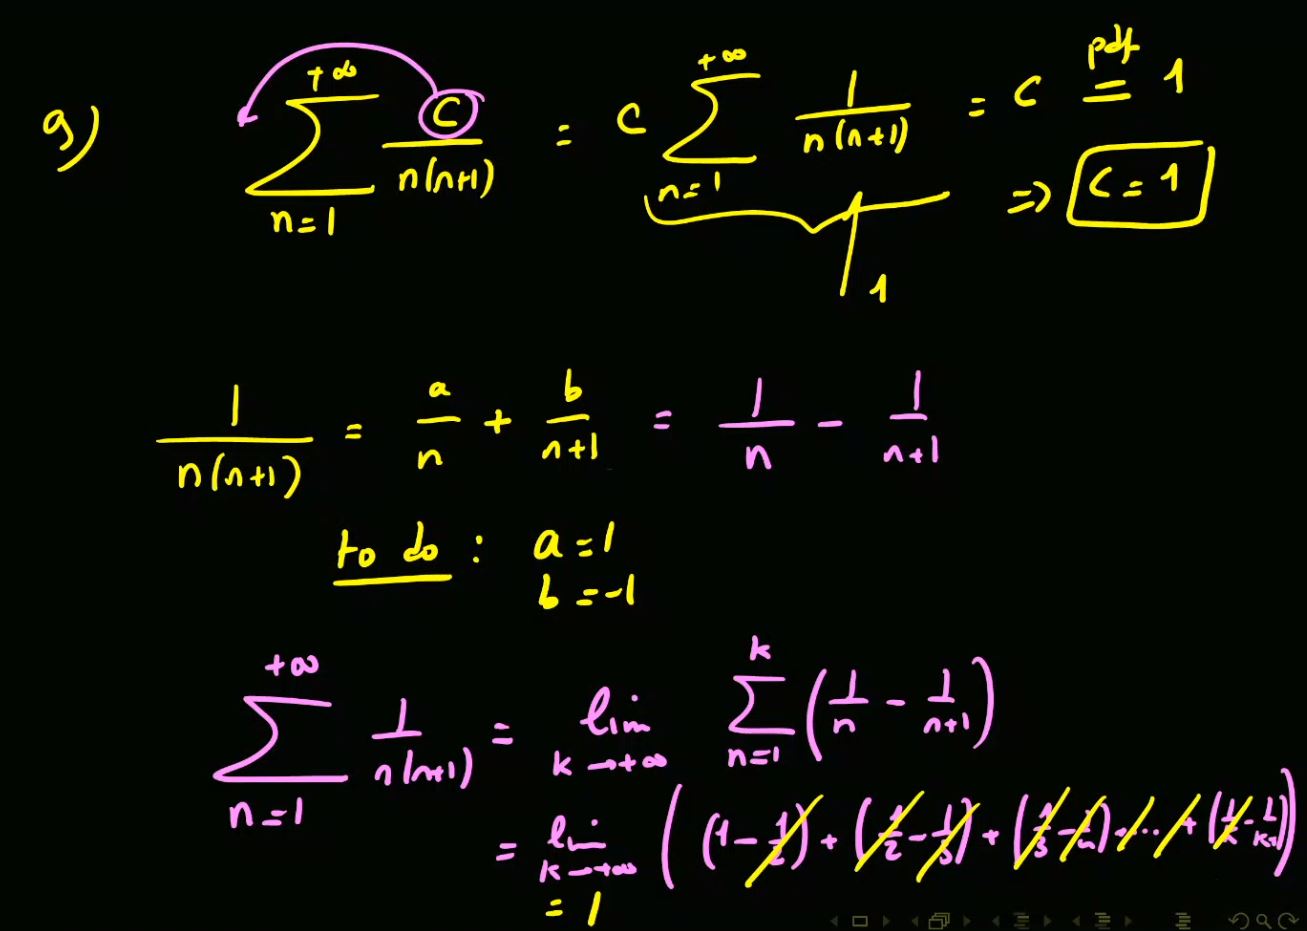 g) \sum_{n=1}^{+\infty} \frac{C}{n(n+1)} = C \sum_{n=1}^{+\infty} \frac{1}{n(n+1)} = C \overset{pdf}{=} 1
1 ⇒ C = 1
\frac{1}{n(n+1)} = \frac{a}{n} + \frac{b}{n+1} = \frac{1}{n} - \frac{1}{n+1}
to do : a = 1
b = -1
\sum_{n=1}^{+\infty} \frac{1}{n(n+1)} = \lim_{k \to +\infty} \sum_{n=1}^{k} \left( \frac{1}{n} - \frac{1}{n+1} \right)
= \lim_{k \to +\infty} \left( (1 - \frac{1}{2}) + (\frac{1}{2} - \frac{1}{3}) + (\frac{1}{3} - \frac{1}{4}) + ... + (\frac{1}{k} - \frac{1}{k+1}) \right)
= 1